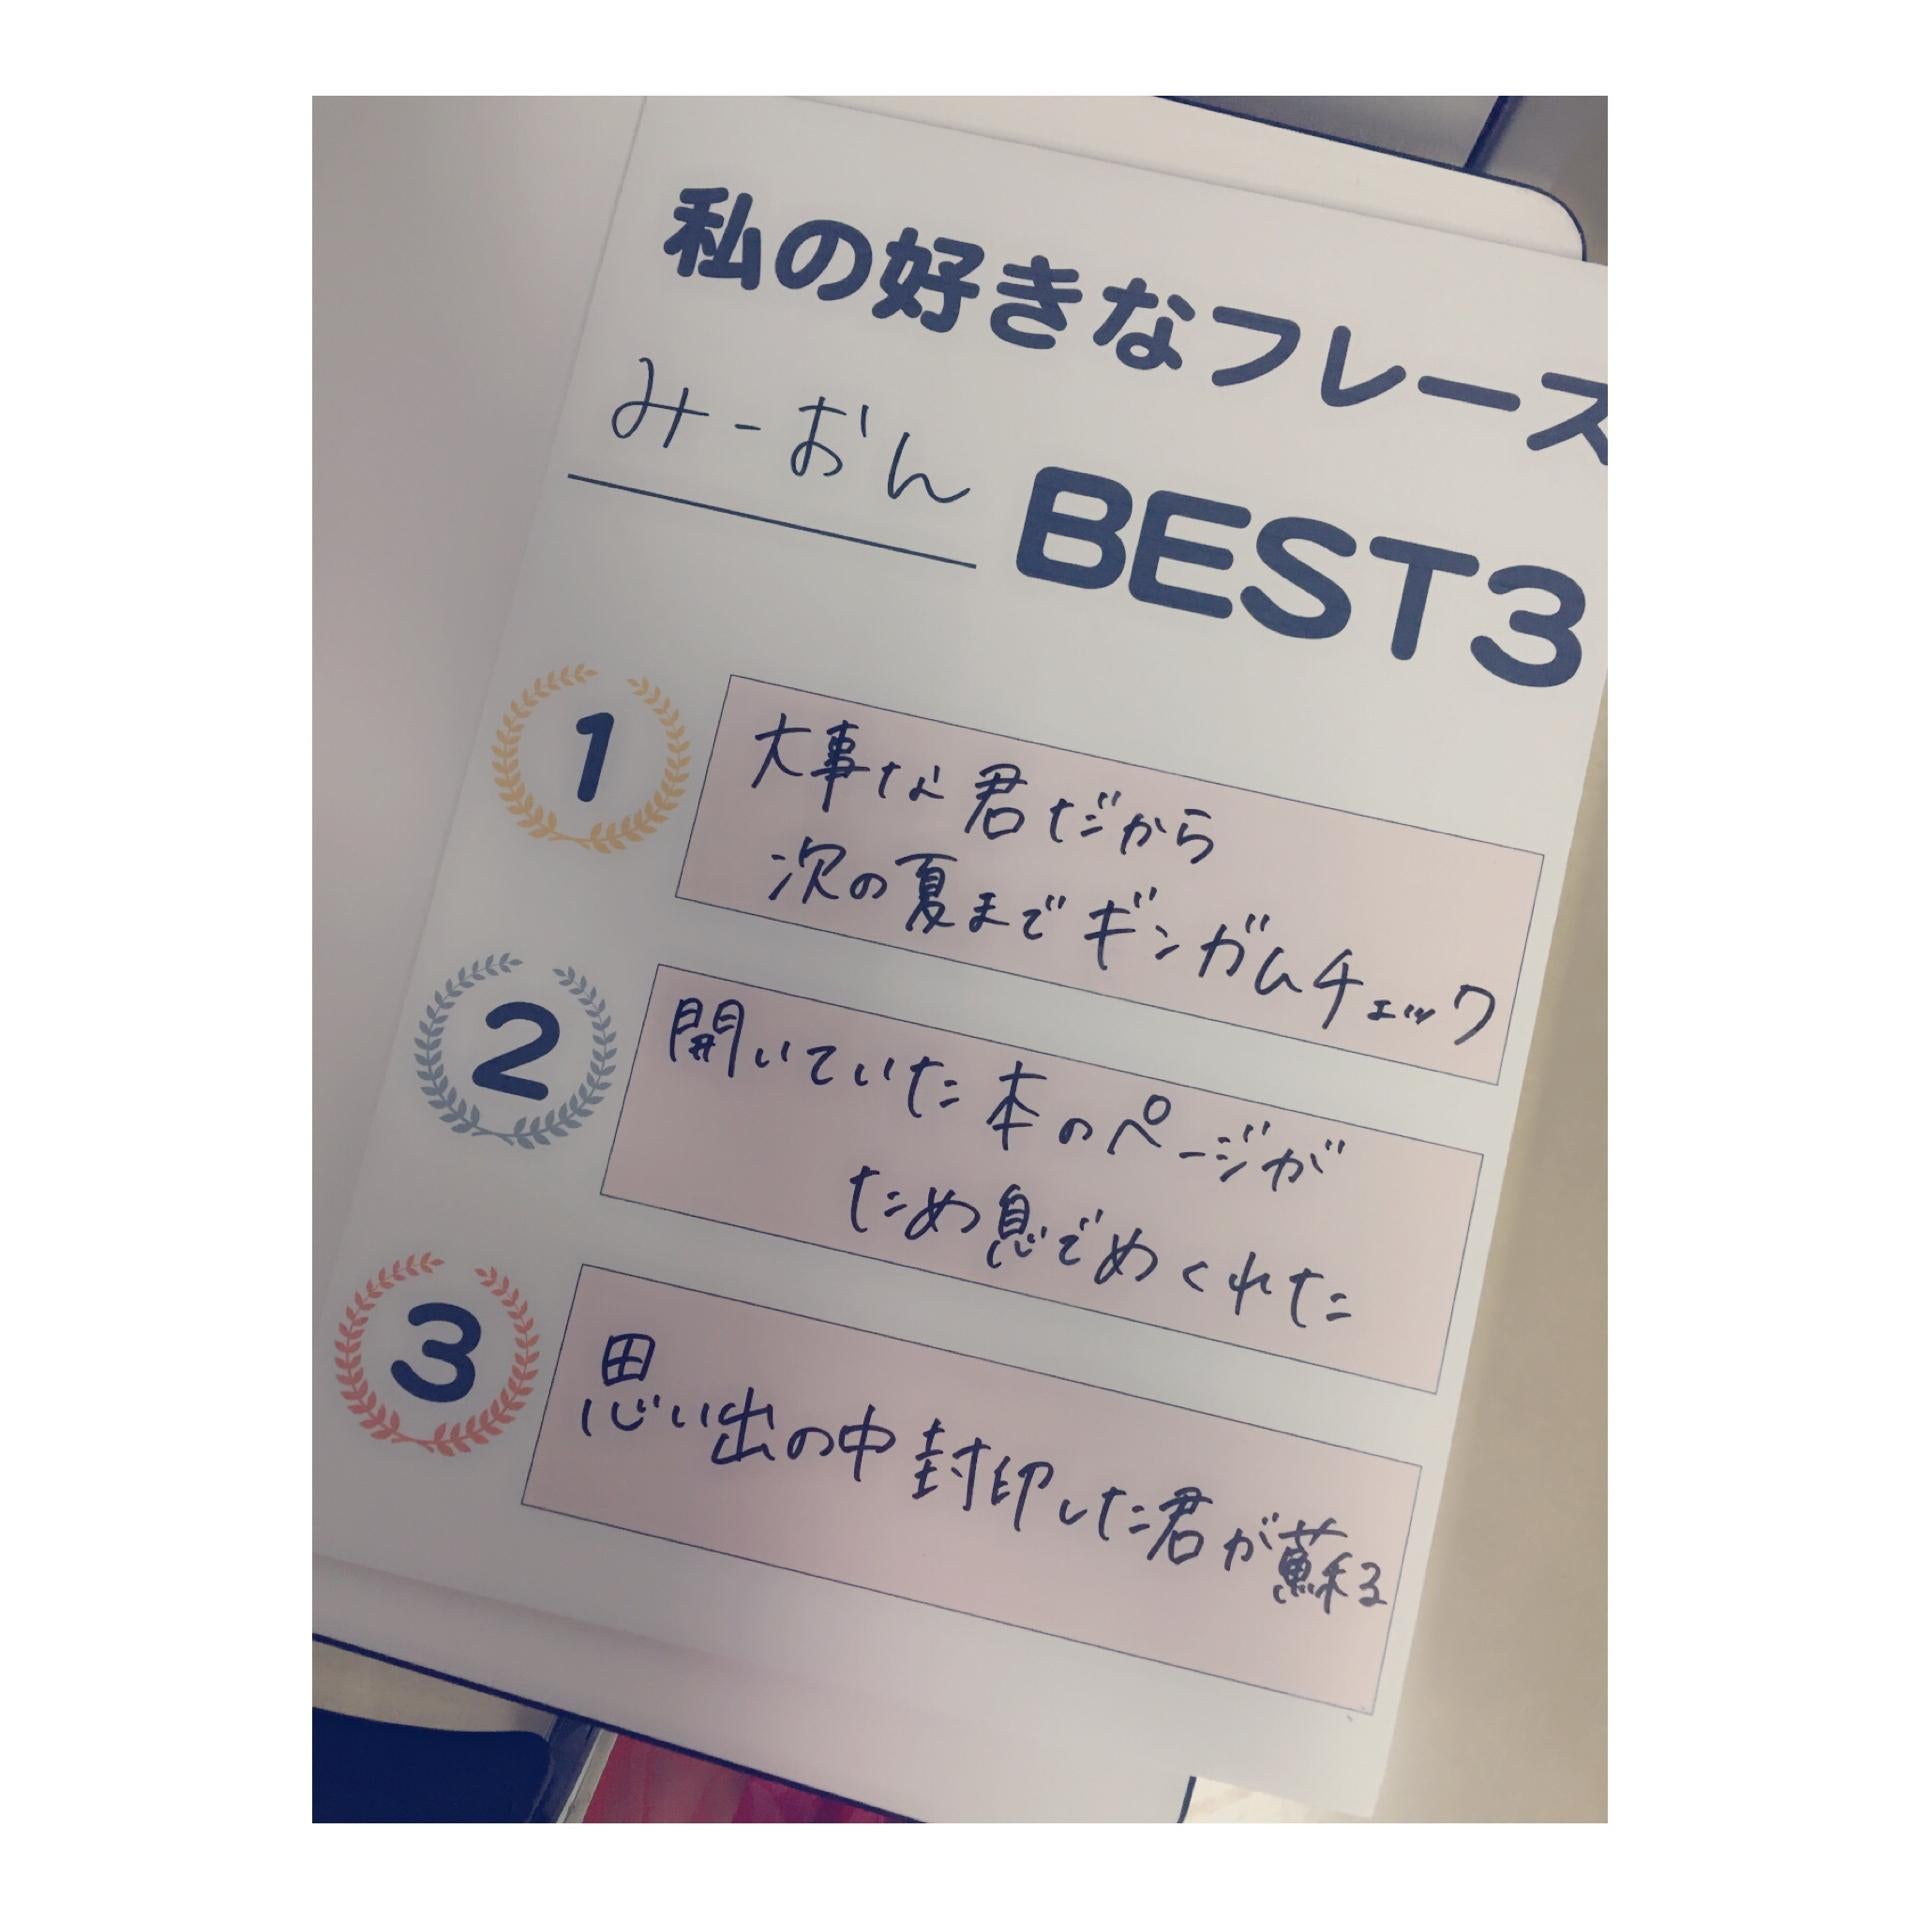 私の好きなフレーズ
みーおん BEST3
1
大事な君だから
次の夏までギンガムチェック
2
開いていた本のページが
ため息でめくれた
3
思い出の中封印した君が蘇る